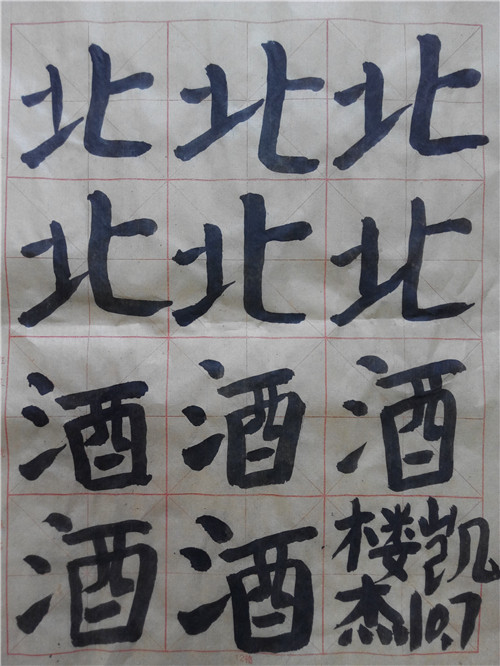 北北北
北北北
酒酒酒
酒酒
楼杰凯
10.7